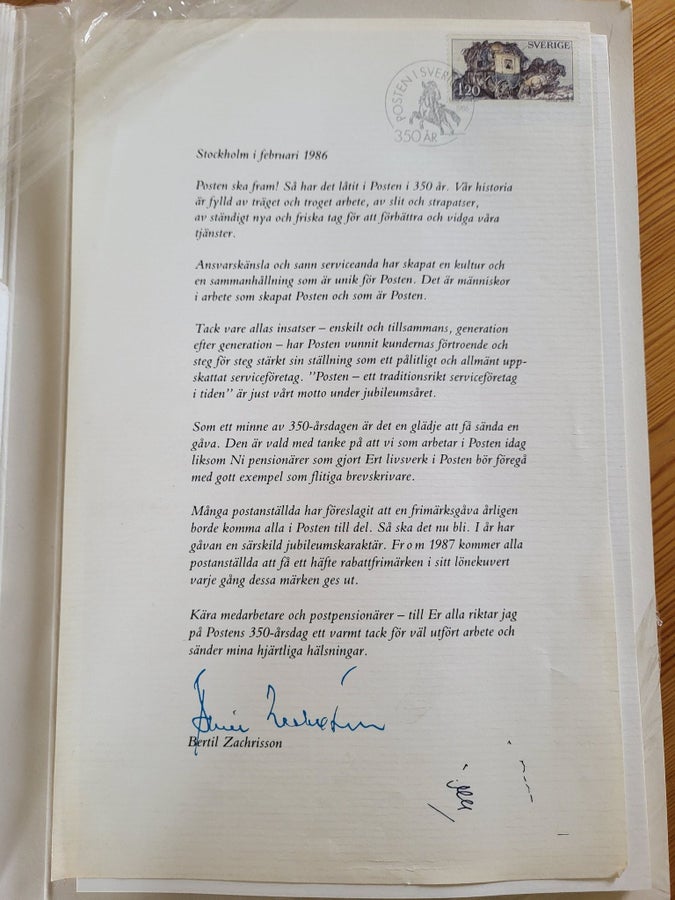 SVERIGE
120
POSTEN I SVER
350 ÅR
Stockholm i februari 1986
Posten ska fram! Så har det låtit i Posten i 350 år. Vår historia
är fylld av träget och troget arbete, av slit och strapatser,
av ständigt nya och friska tag för att förbättra och vidga våra
tjänster.
Ansvarskänsla och sann serviceanda har skapat en kultur och
en sammanhållning som är unik för Posten. Det är människor
i arbete som skapat Posten och som är Posten.
Tack vare allas insatser – enskilt och tillsammans, generation
efter generation – har Posten vunnit kundernas förtroende och
steg för steg stärkt sin ställning som ett pålitligt och allmänt upp-
skattat serviceföretag. ”Posten – ett traditionsrikt serviceföretag
i tiden” är just vårt motto under jubileumsåret.
Som ett minne av 350-årsdagen är det en glädje att få sända en
gåva. Den är vald med tanke på att vi som arbetar i Posten idag
liksom Ni pensionärer som gjort Ert livsverk i Posten bör föregå
med gott exempel som flitiga brevskrivare.
Många postanställda har föreslagit att en frimärksgåva årligen
borde komma alla i Posten till del. Så ska det nu bli. I år har
gåvan en särskild jubileumskaraktär. Fr o m 1987 kommer alla
postanställda att få ett häfte rabattfrimärken i sitt lönekuvert
varje gång dessa märken ges ut.
Kära medarbetare och postpensionärer – till Er alla riktar jag
på Postens 350-årsdag ett varmt tack för väl utfört arbete och
sänder mina hjärtliga hälsningar.
Bertil Zachrisson